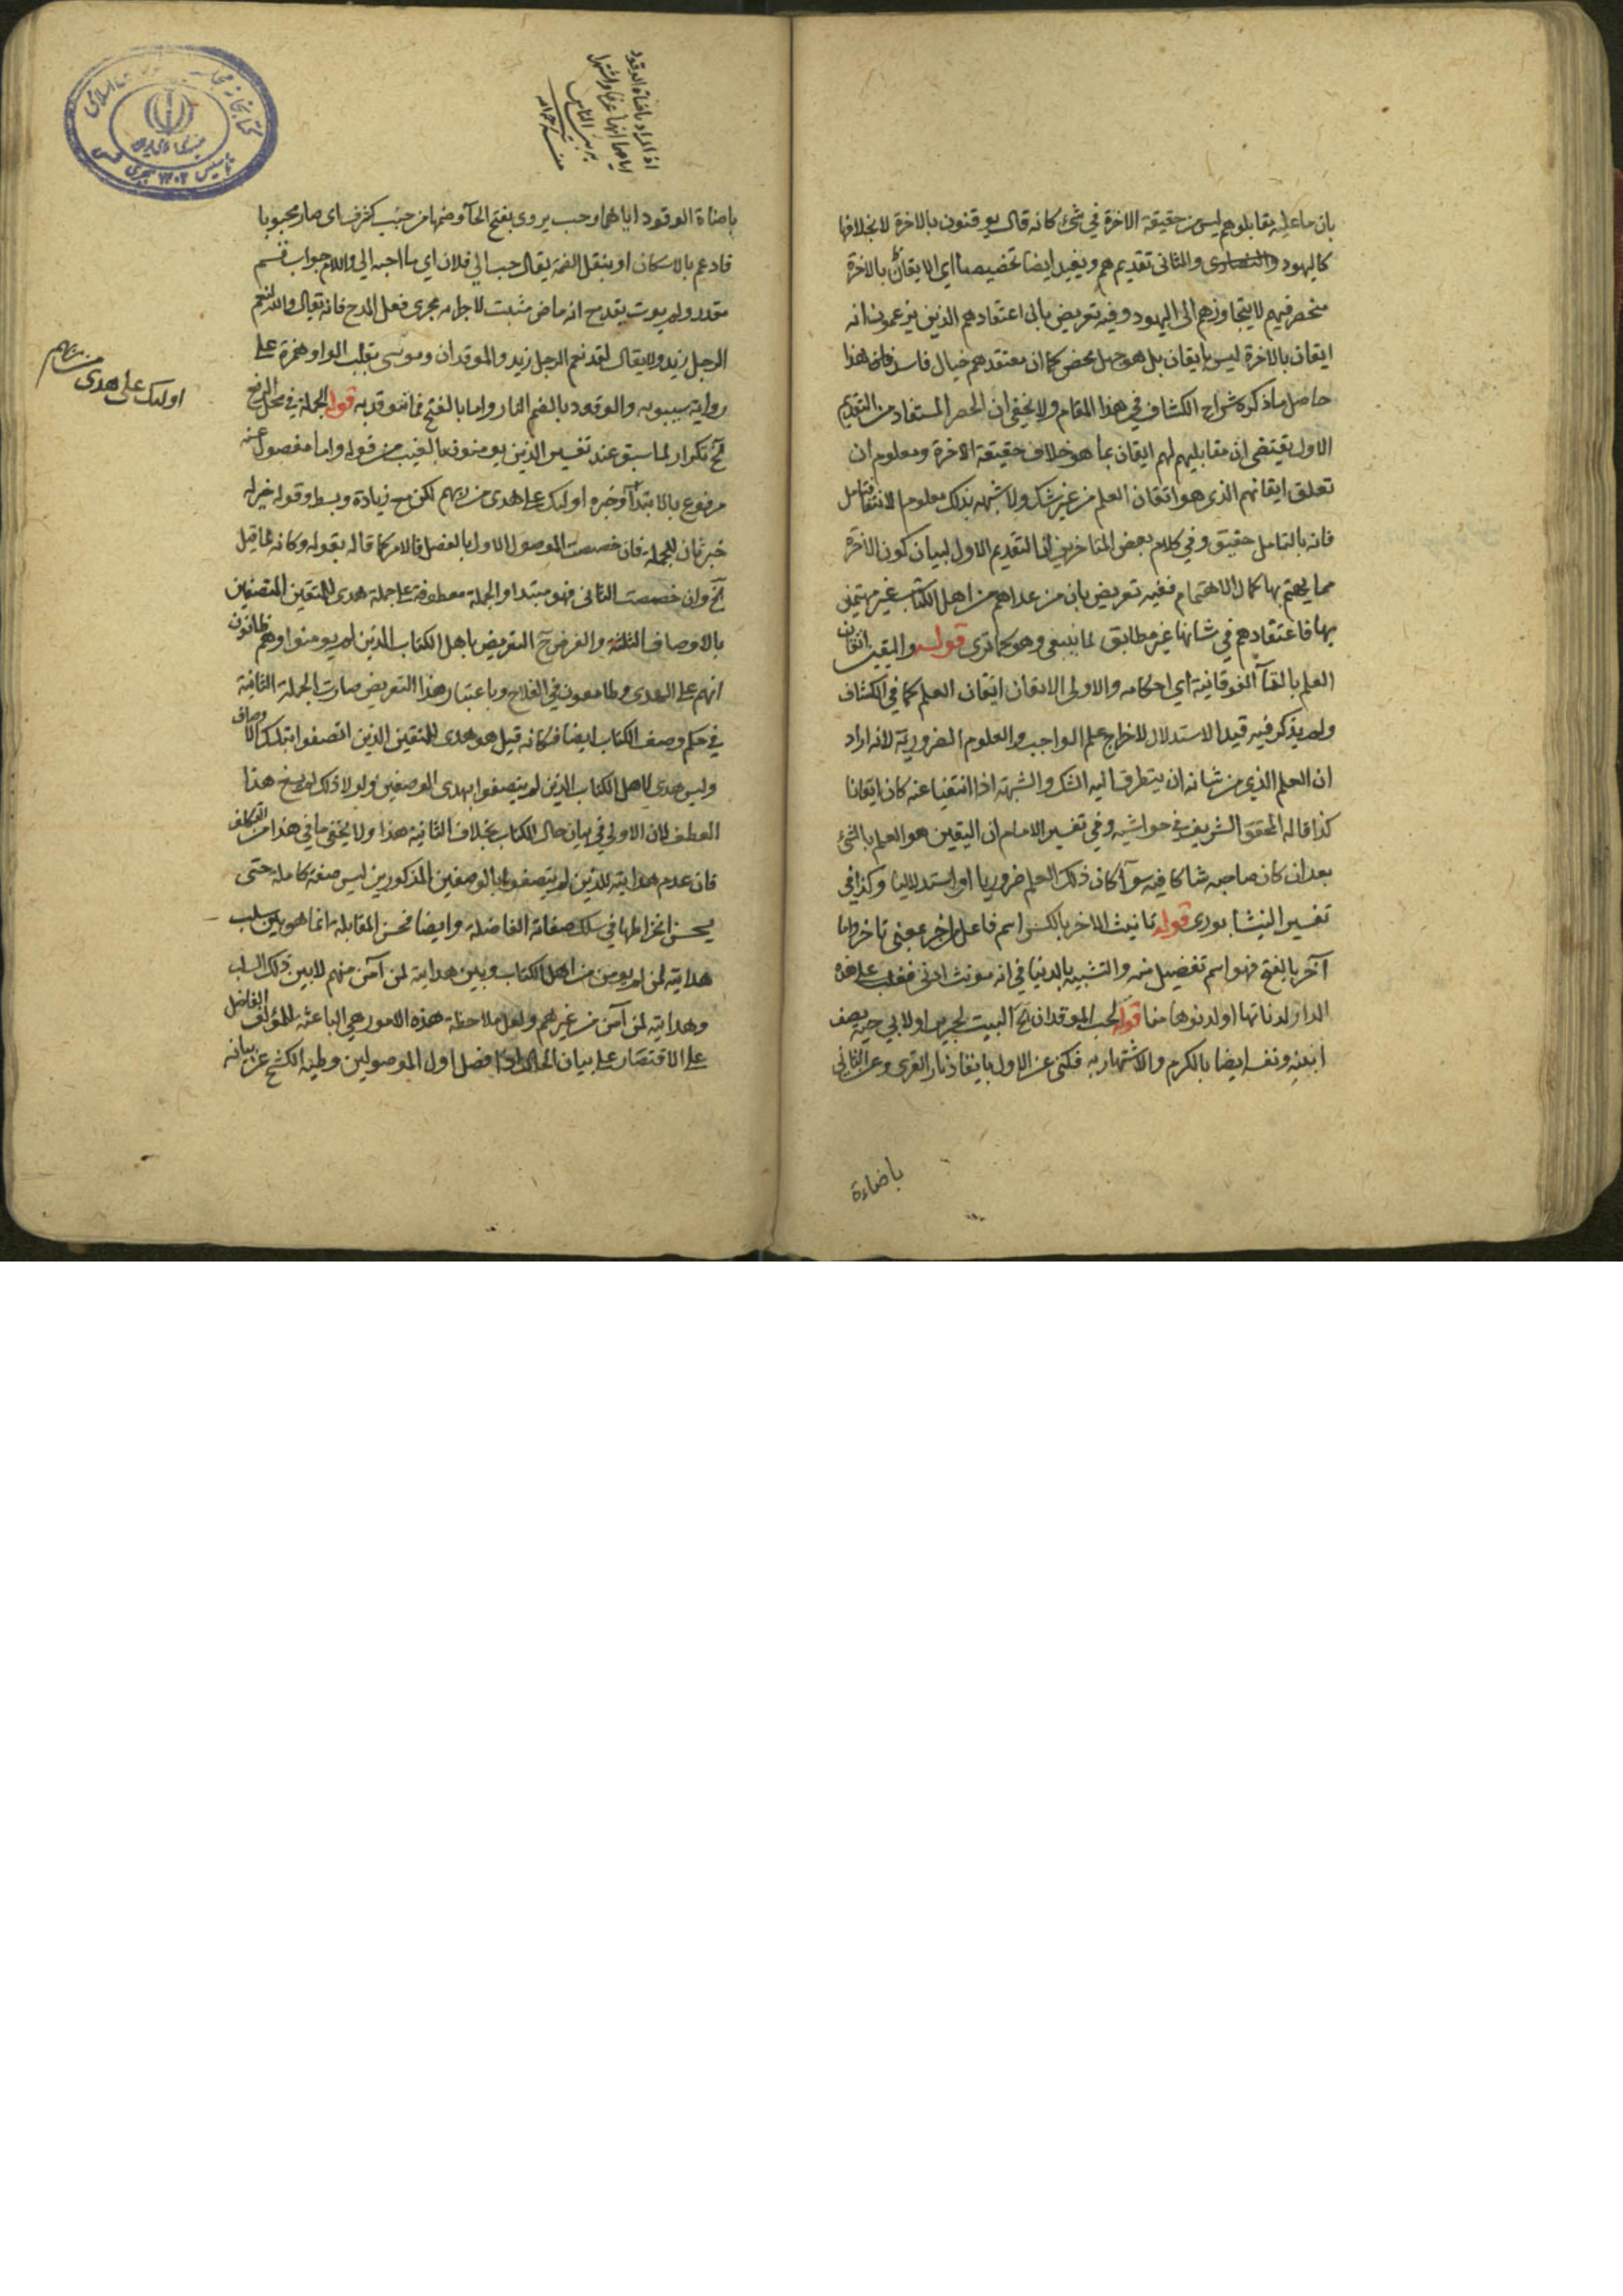 بان ما عليه مقابلوهم ليس من حقيقة الاخرة في شئ كانه قال يوقنون بالاخرة لا بخلافها
كاليهود والنصارى والثاني تقديم هم ويفيد ايضا تخصيصا اي الايقان بالاخرة
منحصر فيهم لا يتجاوزهم الى اليهود وفيه تعريض بان اعتقادهم الذين يزعمون انه
ايقان بالاخرة ليس بايقان بل هو جهل محض كما ان معتقدهم خيال فاسد هذا
حاصل ما ذكره شراح الكشاف في هذا المقام ولا يخفى ان الحصر المستفاد من التقديم
الاول يقتضي ان مقابليهم لهم ايقان بما هو خلاف حقيقة الاخرة ومعلوم ان
تعلق ايقانهم الذي هو اتقان العلم من غير شك ولا شبهة بذلك معلوم الانتفا فتامل
فانه بالتامل حقيق وفي كلام بعض المتاخرين ان التقديم الاول لبيان كون الاخرة
مما يهتم بها كمال الاهتمام ففيه تعريض بان من عداهم من اهل الكتاب غير مهتمين
بها فاعتقادهم في شانها غير مطابق لما ينبغي وهو كما ترى قوله واليقين اتقان
العلم بالتآ الفوقانية اي احكامه والاولى الايقان ايقان العلم كما في الكشاف
ولم يذكر فيه قيد الاستدلال لاخراج علم الواجب والعلوم الضرورية لانه اراد
ان العلم الذي من شانه ان يتطرق اليه الشك والشبهة اذا انتفيا عنه كان ايقانا
كذا قاله المحقق الشريف في حواشيه وفي تفسير الامام ان اليقين هو العلم بالشئ
بعد ان كان صاحبه شاكا فيه سوآ كان ذلك العلم ضروريا او استدلاليا وكذا في
تفسير النيشابوري قوله تانيث الاخر بالكسر اسم فاعل من اخر بمعنى تاخر واما
آخر بالفتح فهو اسم تفضيل منه والتشبيه بالدنيا في انه مونث ادنى فغلب على هذه
الدار لدنائتها او لدنوها منا قوله لحب الموقدان آلخ البيت لجرير او لابي حية يصف
ابنيه ونفسه ايضا بالكرم والاشتهار به فكنى عن الاول بايقاد نار القرى وعن الثاني
باضاءة
اذ المراد باضاءة الوقود
اياهما
باضاة الوقود اياهما وحب يروى بفتح الحآ وضمها من حبب ككرم اي صار محبوبا
فادغم بالاسكان او بنقل الضمة يقال حبب الي فلان اي ما احبه الي واللام جواب قسم
مقدر ولم يوت بقد مع انه ماض مثبت لاجرائه مجرى فعل المدح فانه يقال والله لنعم
الرجل زيد ولا يقال لقد نعم الرجل زيد والموقدان وموسى بقلب الواو همزة على
رواية سيبويه والوقود بالضم النار واما بالفتح فما توقد به قوله الجملة في محل الرفع
آلخ تكرار لما سبق عند تفسير الذين يومنون بالغيب من قوله واما مفصول عنه
مرفوع بالابتدآ وخبره اولئك على هدى من ربهم لكن مع زيادة وبسط وقوله خبر له
خبر ثان للجملة فان خصصت الموصول الاول بالفصل فالامر كما قاله بقوله وكانه لما قيل
آلخ وان خصصت الثاني فهو مبتدا والجملة معطوفة على جملة هدى للمتقين المتصفين
بالاوصاف الثلثة والغرض ح التعريض باهل الكتاب الذين لم يومنوا وهم ظانون
انهم على الهدى وطامعون في الفلاح وباعتبار هذا التعريض صارت الجملة الثانية
في حكم وصف الكتاب ايضا فكانه قيل هو هدى للمتقين الذين اتصفوا بتلك الاوصاف
وليس هدى لاهل الكتاب الذين لم يتصفوا بهدى الوصفين ولولا ذلك لم يسغ هذا
العطف لان الاولى في بيان حال الكتاب بخلاف الثانية هذا ولا يخفى ما في هذا من التكلف
فان عدم هدايته للذين لم يتصفوا بالوصفين المذكورين ليس صفة كاملة حتى
يحسن انخراطها في سلك صفاته الفاضلة وايضا فحسن المقابلة انما هو بين سلب
هدايته لمن لم يومن من اهل الكتاب وبين هدايته لمن آمن منهم لا بين ذلك السلب
وهدايته لمن آمن من غيرهم ولعل ملاحظة هذه الامور هي الباعثة للمؤلف الفاضل
على الاقتصار على بيان الحال افضل اول الموصولين وطيه الكشح عن بيانه
اولئك على هدى من ربهم